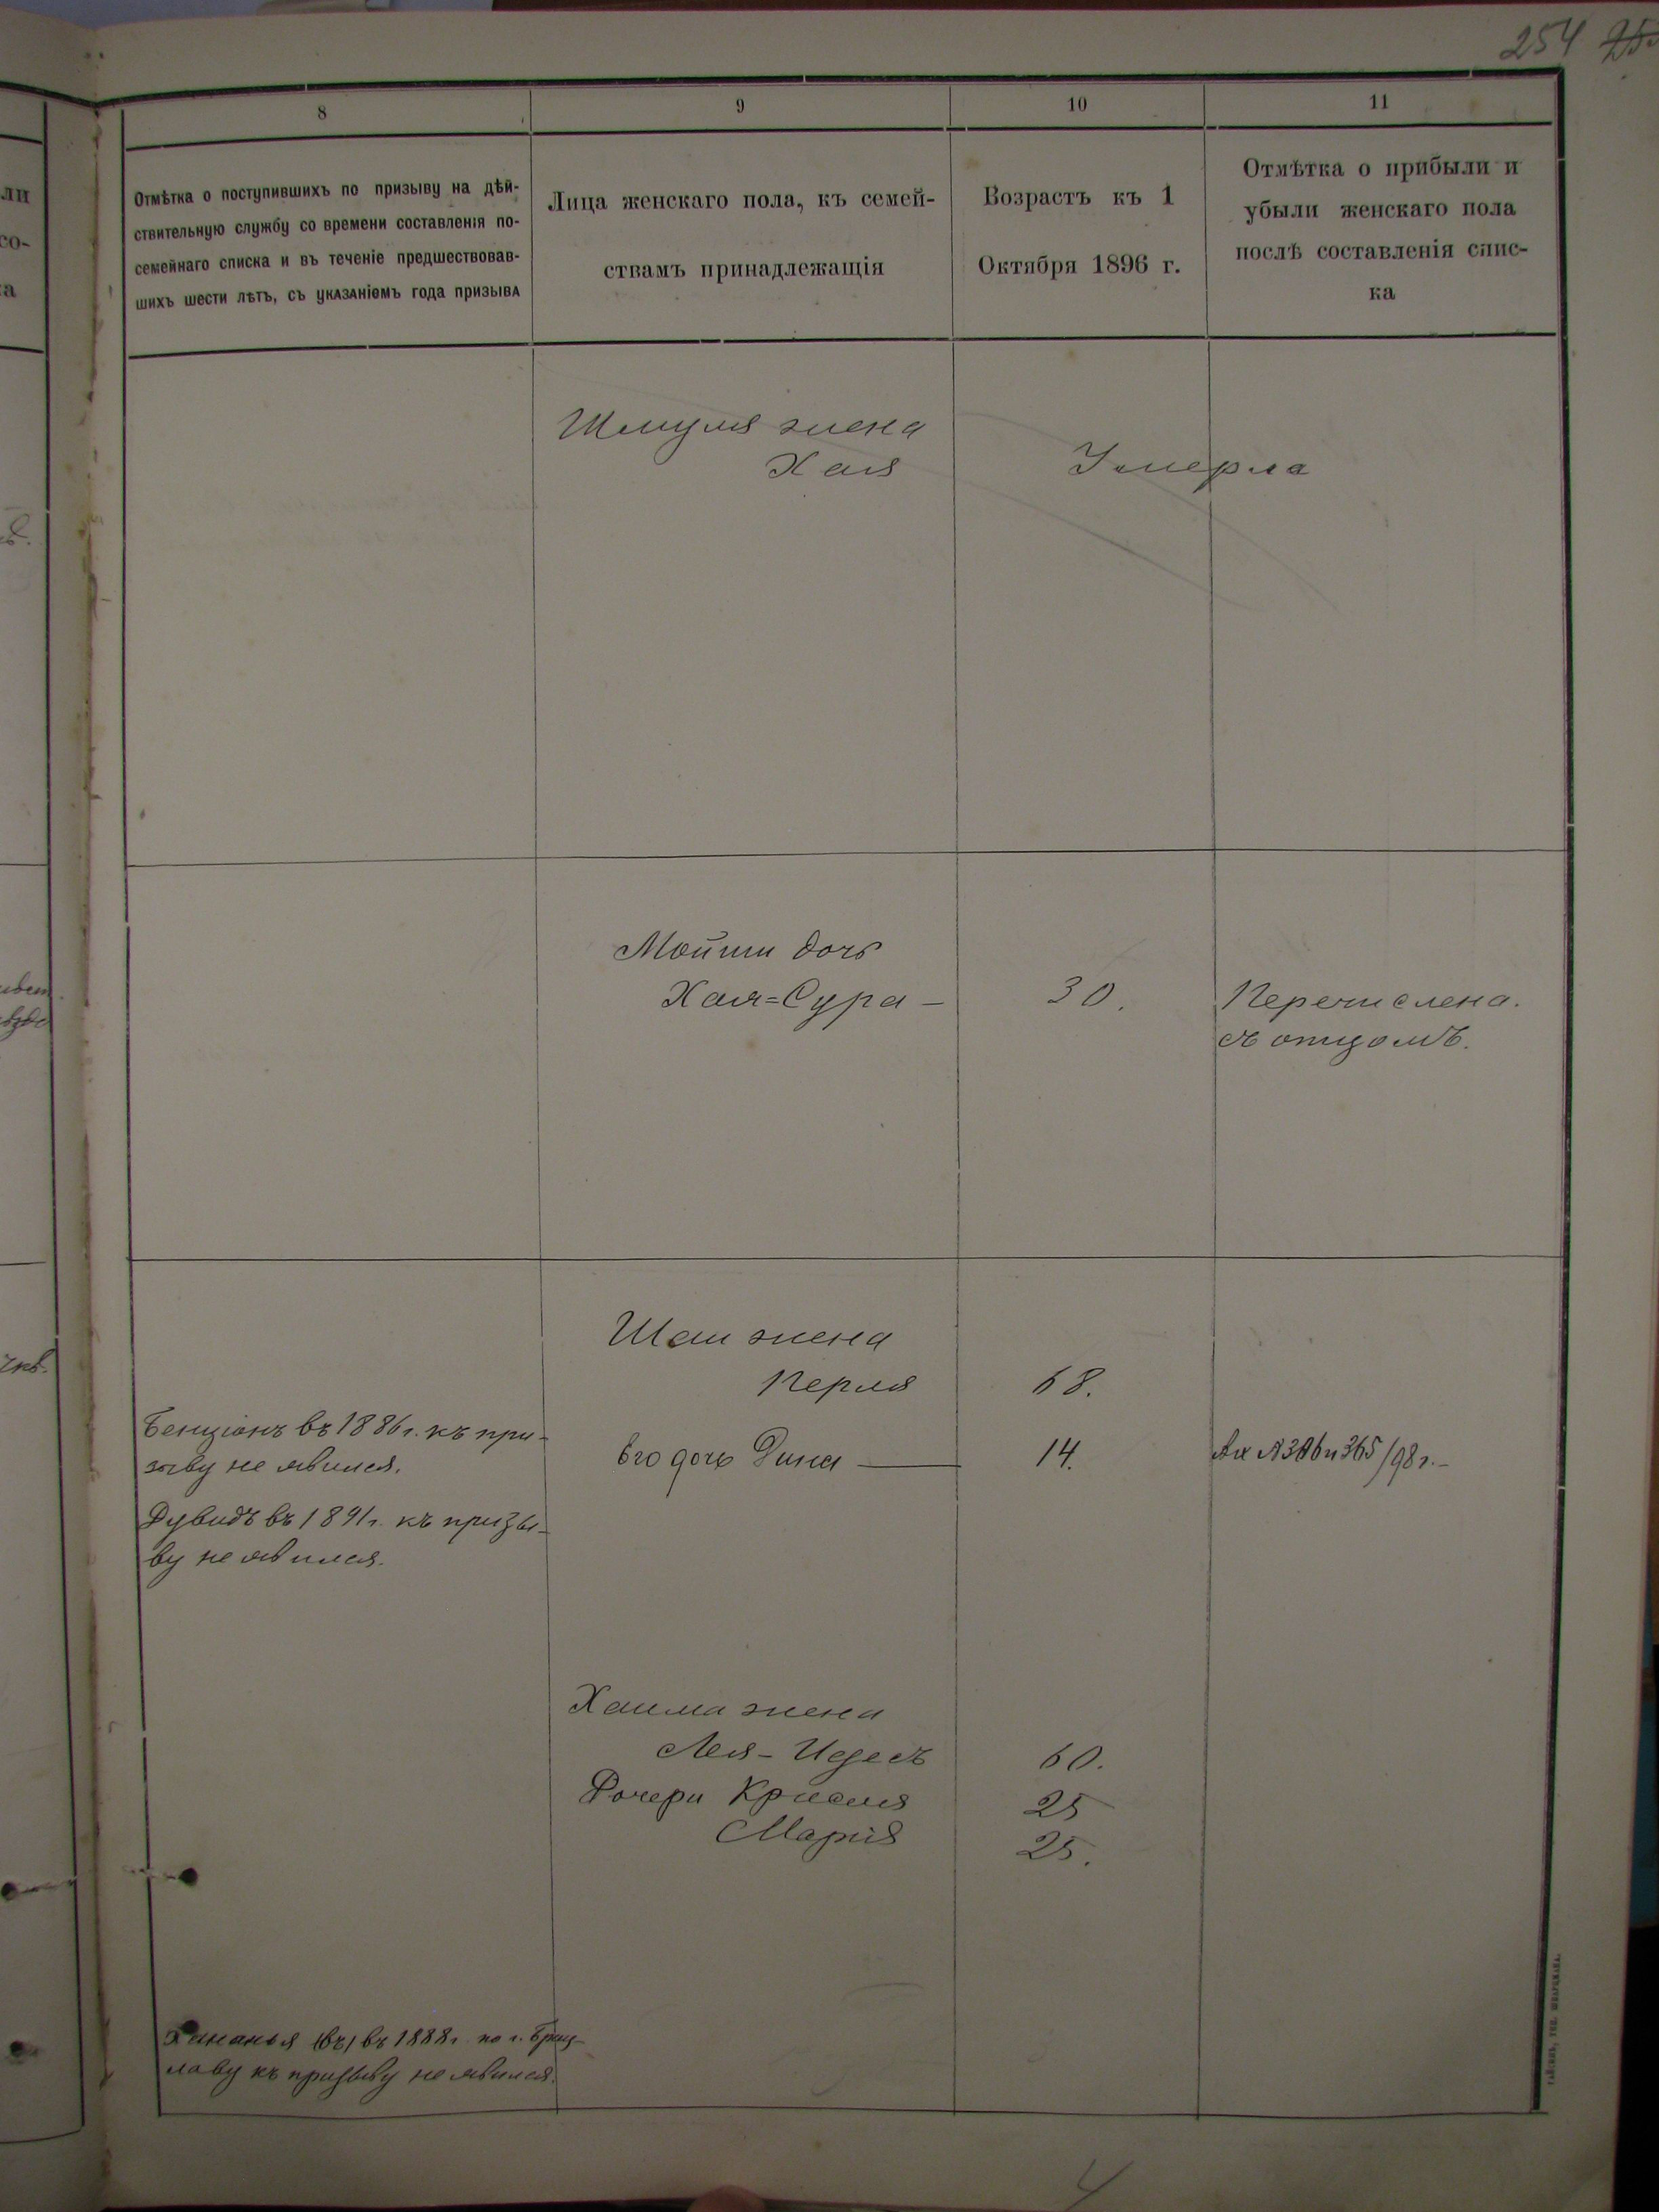 254
8
9
10
11
Отмѣтка о поступившихъ по призыву на дѣй-
ствительную службу со времени составленія по-
семейнаго списка и въ теченіе предшествовав-
шихъ шести лѣтъ, съ указаніемъ года призыва
Лица женскаго пола, къ семей-
ствамъ принадлежащія
Возрастъ къ 1
Октября 1896 г.
Отмѣтка о прибыли и
убыли женскаго пола
послѣ составленія спис-
ка
Шмуля жена
Хая
Умерла
Мойши дочь
Хая=Сура —
30.
Перечислена.
съ отцомъ.
Шаи жена
Перля
68.
Бенціонъ въ 1886 г. къ при-
зыву не явился.
Его дочь Дина —
14.
365/98 г.-
Дувидъ въ 1891 г. къ призы-
ву не явился.
Хаима жена
Лея-Идесъ
60.
Дочери Крейся
25
Марія
25.
Хананья въ 1888 г. по г. Брац-
лаву къ призыву не явился.